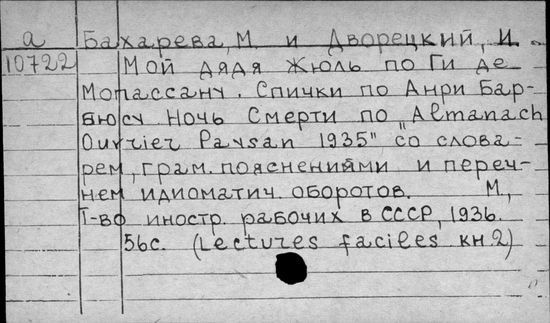 а Бахарева, М. и Дворецкий, И.
10722 Мой дядя Жюль по Ги де
Мопассану. Спички по Анри Бар-
бюсу Ночь Смерти по "Almanach
Ouvrier Paysan 1935" со слова-
рем, грам. пояснениями и переч-
нем идиоматич. оборотов. М.,
Т-во иностр. рабочих в СССР, 1936.
56с. (Lectures faciles кн 2)